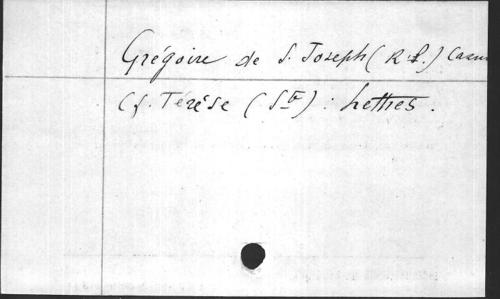 Grégoire de S. Joseph (R.P.)
Cf. Térèse (Ste) : Lettres.